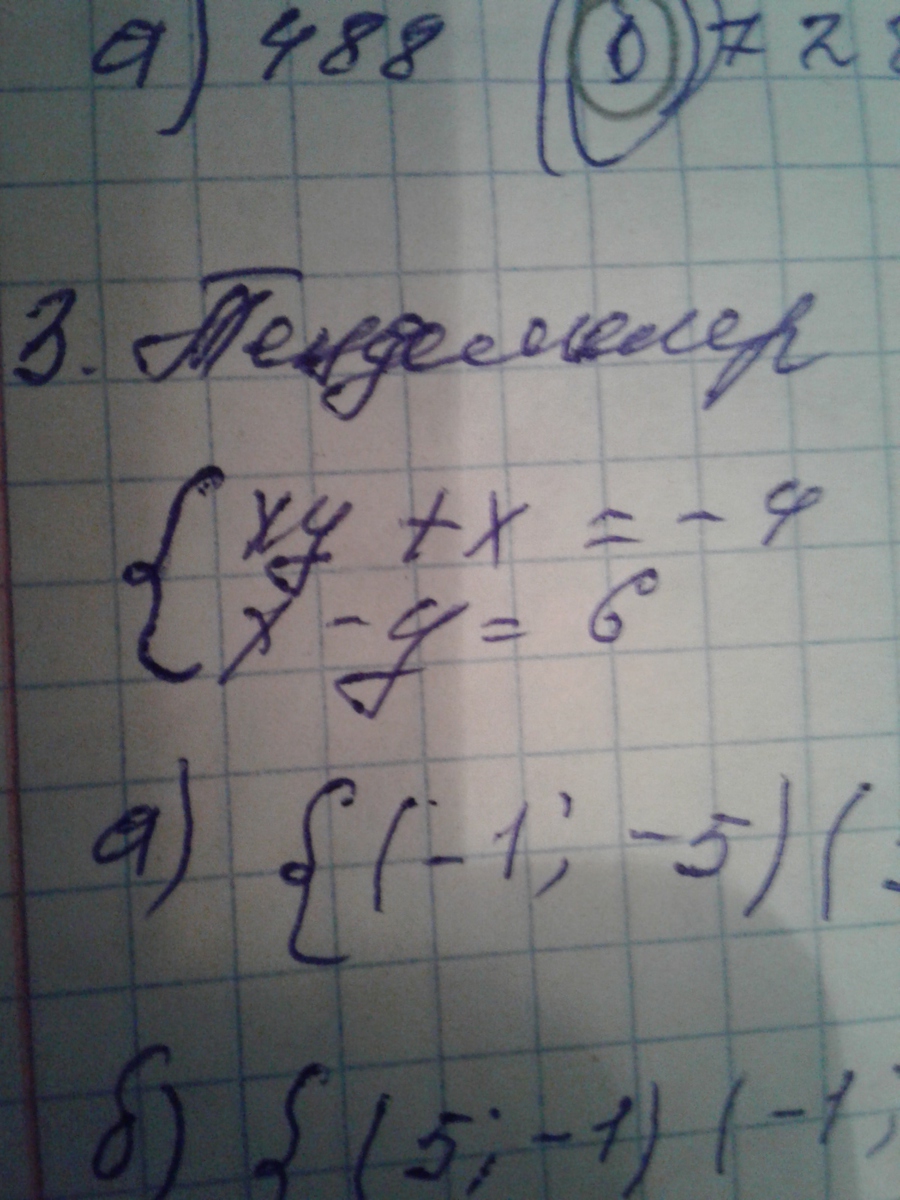 а) 488 б) 728
3. Теңдемелер
{ xy + x = - 4
x - y = 6
а) { (-1; -5) (
б) { (5; -1) (-1;